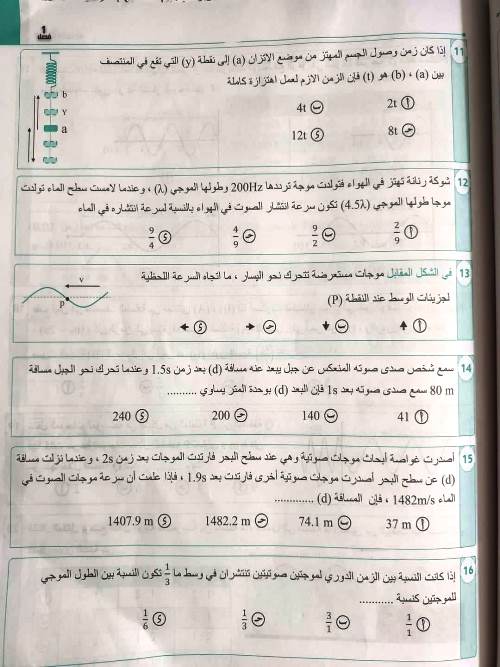 1
فصل
11 إذا كان زمن وصول الجسم المهتز من موضع الاتزان (a) إلى نقطة (y) التي تقع في المنتصف
بين (a) ، (b) هو (t) فإن الزمن الازم لعمل اهتزازة كاملة
أ 2t ب 4t
ج 8t د 12t
b
y
a
12 شوكة رنانة تهتز في الهواء فتولدت موجة ترددها 200Hz وطولها الموجي (λ) ، وعندما لامست سطح الماء تولدت
موجا طولها الموجي (4.5λ) تكون سرعة انتشار الصوت في الهواء بالنسبة لسرعة انتشاره في الماء
أ 2/9 ب 9/2 ج 4/9 د 9/4
13 في الشكل المقابل موجات مستعرضة تتحرك نحو اليسار ، ما اتجاه السرعة اللحظية
لجزيئات الوسط عند النقطة (P)
أ ↑ ب ↓ ج → د ←
v
P
14 سمع شخص صدى صوته المنعكس عن جبل يبعد عنه مسافة (d) بعد زمن 1.5s وعندما تحرك نحو الجبل مسافة
80 m سمع صدى صوته بعد 1s فإن البعد (d) بوحدة المتر يساوي ..........
أ 41 ب 140 ج 200 د 240
15 أصدرت غواصة أبحاث موجات صوتية وهي عند سطح البحر فارتدت الموجات بعد زمن 2s ، وعندما نزلت مسافة
(d) عن سطح البحر أصدرت موجات صوتية أخرى فارتدت بعد 1.9s ، فإذا علمت أن سرعة موجات الصوت في
الماء 1482m/s ، فإن المسافة (d) .............
أ 37 m ب 74.1 m ج 1482.2 m د 1407.9 m
16 إذا كانت النسبة بين الزمن الدوري لموجتين صوتيتين تنتشران في وسط ما 1/3 تكون النسبة بين الطول الموجي
للموجتين كنسبة ...........
أ 1/1 ب 3/1 ج 1/3 د 1/6